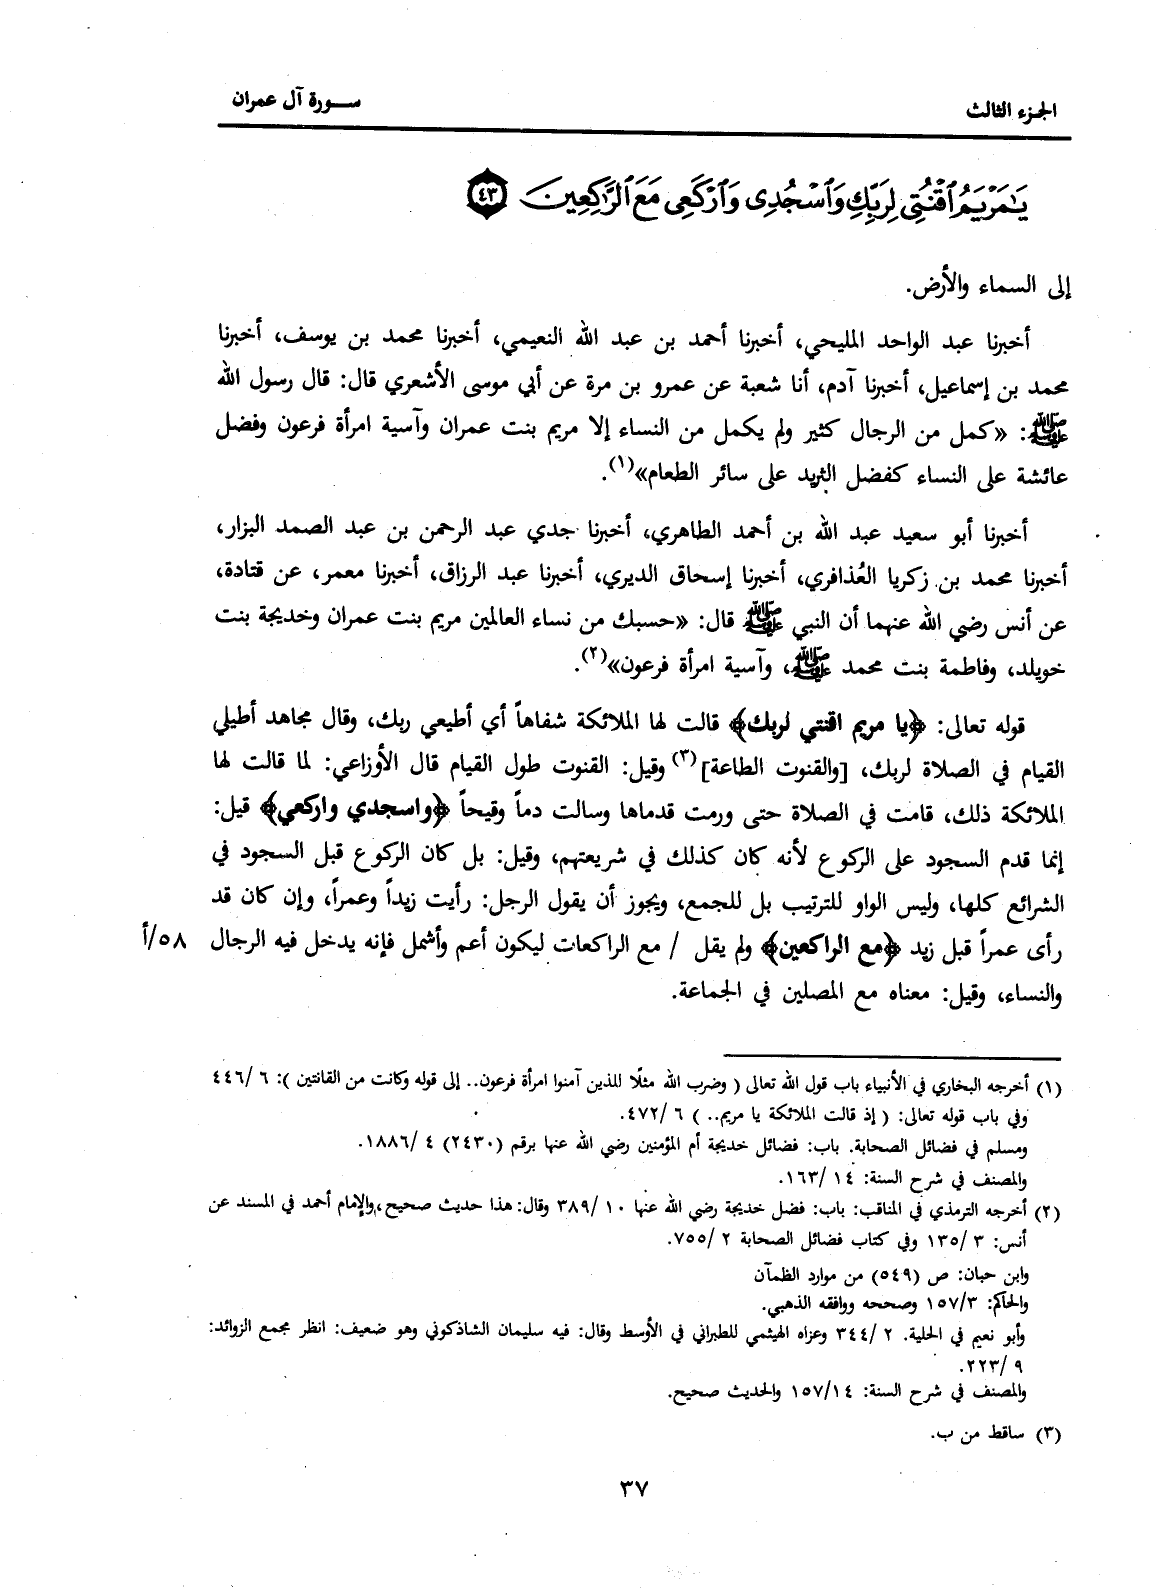 الجزء الثالث
سورة آل عمران
يَٰمَرْيَمُ ٱقْنُتِى لِرَبِّكِ وَٱسْجُدِى وَٱرْكَعِى مَعَ ٱلرَّٰكِعِينَ ٤٣
إلى السماء والأرض.
أخبرنا عبد الواحد المليحي، أخبرنا أحمد بن عبد الله النعيمي، أخبرنا محمد بن يوسف، أخبرنا
محمد بن إسماعيل، أخبرنا آدم، أنا شعبة عن عمرو بن مرة عن أبي موسى الأشعري قال: قال رسول الله
ﷺ: «كمل من الرجال كثير ولم يكمل من النساء إلا مريم بنت عمران وآسية امرأة فرعون وفضل
عائشة على النساء كفضل الثريد على سائر الطعام»(١).
أخبرنا أبو سعيد عبد الله بن أحمد الطاهري، أخبرنا جدي عبد الرحمن بن عبد الصمد البزار،
أخبرنا محمد بن زكريا العُذافري، أخبرنا إسحاق الديري، أخبرنا عبد الرزاق، أخبرنا معمر، عن قتادة،
عن أنس رضي الله عنهما أن النبي ﷺ قال: «حسبك من نساء العالمين مريم بنت عمران وخديجة بنت
خويلد، وفاطمة بنت محمد ﷺ، وآسية امرأة فرعون»(٢).
قوله تعالى: ﴿يا مريم اقنتي لربك﴾ قالت لها الملائكة شفاهاً أي أطيعي ربك، وقال مجاهد أطيلي
القيام في الصلاة لربك، [والقنوت الطاعة](٣) وقيل: القنوت طول القيام قال الأوزاعي: لما قالت لها
الملائكة ذلك، قامت في الصلاة حتى ورمت قدماها وسالت دماً وقيحاً ﴿واسجدي واركعي﴾ قيل:
إنما قدم السجود على الركوع لأنه كان كذلك في شريعتهم، وقيل: بل كان الركوع قبل السجود في
الشرائع كلها، وليس الواو للترتيب بل للجمع، ويجوز أن يقول الرجل: رأيت زيداً وعمراً، وإن كان قد
رأى عمراً قبل زيد ﴿مع الراكعين﴾ ولم يقل / مع الراكعات ليكون أعم وأشمل فإنه يدخل فيه الرجال ٥٨/أ
والنساء، وقيل: معناه مع المصلين في الجماعة.
(١) أخرجه البخاري في الأنبياء باب قول الله تعالى ( وضرب الله مثلًا للذين آمنوا امرأة فرعون.. إلى قوله وكانت من القانتين ): ٦ /٤٤٦
وفي باب قوله تعالى: ( إذ قالت الملائكة يا مريم.. ) ٦ /٤٧٢.
ومسلم في فضائل الصحابة. باب: فضائل خديجة أم المؤمنين رضي الله عنها برقم (٢٤٣٠) ٤ /١٨٨٦.
والمصنف في شرح السنة: ١٤ /١٦٣.
(٢) أخرجه الترمذي في المناقب: باب: فضل خديجة رضي الله عنها ١٠ /٣٨٩ وقال: هذا حديث صحيح، والإمام أحمد في المسند عن
أنس: ٣ /١٣٥ وفي كتاب فضائل الصحابة ٢ /٧٥٥.
وابن حبان: ص (٥٤٩) من موارد الظمآن
والحاكم: ١٥٧/٣ وصححه ووافقه الذهبي.
وأبو نعيم في الحلية. ٢ /٣٤٤ وعزاه الهيثمي للطبراني في الأوسط وقال: فيه سليمان الشاذكوني وهو ضعيف: انظر مجمع الزوائد:
٩ /٢٢٣.
والمصنف في شرح السنة: ١٥٧/١٤ والحديث صحيح.
(٣) ساقط من ب.
٣٧